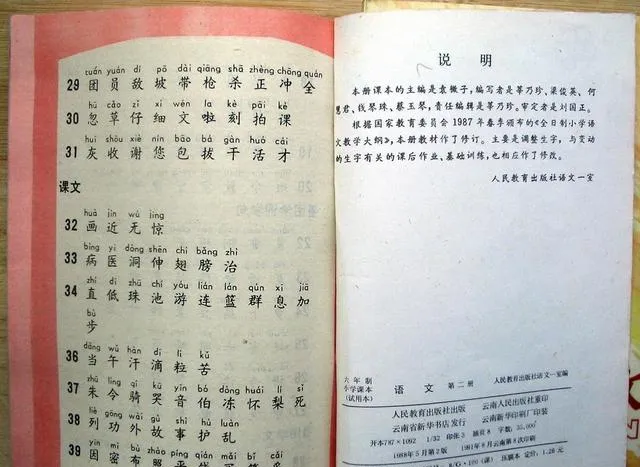 tuán yuán dí pō dài qiāng shā zhèng chōng quán
29 团 员 敌 坡 带 枪 杀 正 冲 全
hū cǎo zǐ xì wén la kè pāi kè
30 忽 草 仔 细 文 啦 刻 拍 课
huī shōu xiè nín bāo bá gàn huó cái
31 灰 收 谢 您 包 拔 干 活 才
课文
huà jìn wú jīng
32 画 近 无 惊
bìng yī dòng shēn chì bǎng zhì
33 病 医 洞 伸 翅 膀 治
zhí dī zhū chí yóu lián lán qún xī jiā
34 直 低 珠 池 游 连 篮 群 息 加
bù
步
dāng wǔ hàn dī lì kǔ
36 当 午 汗 滴 粒 苦
zhū lìng qí kū yīn bó dòng huái lí sǐ
37 朱 令 骑 哭 音 伯 冻 怀 梨 死
liè gōng wài gù shì hù luàn
38 列 功 外 故 事 护 乱
39 因 密 布 照
说 明
本册课本的主编是袁微子,编写者是莘乃珍、梁俊英、何
慧君、钱琴珠、蔡玉琴,责任编辑是莘乃珍。审定者是刘国正。
根据国家教育委员会 1987 年春季颁布的《全日制小学语
文教学大纲》,本册教材作了修订。主要是调整生字,与变动
的生字有关的课后作业、基础训练,也相应作了修改。
人民教育出版社语文一室
六 年 制
小学课本
(试用本)
语 文 第 二 册
人民教育出版社语文一室编
人民教育出版社出版 云南人民出版社重印
云南省新华书店发行 云南新华印刷厂印装
开本787×1092 1/32 印张3 插页8 字数 35,000
1988年5月第2版 1991年8月云南第8次印刷